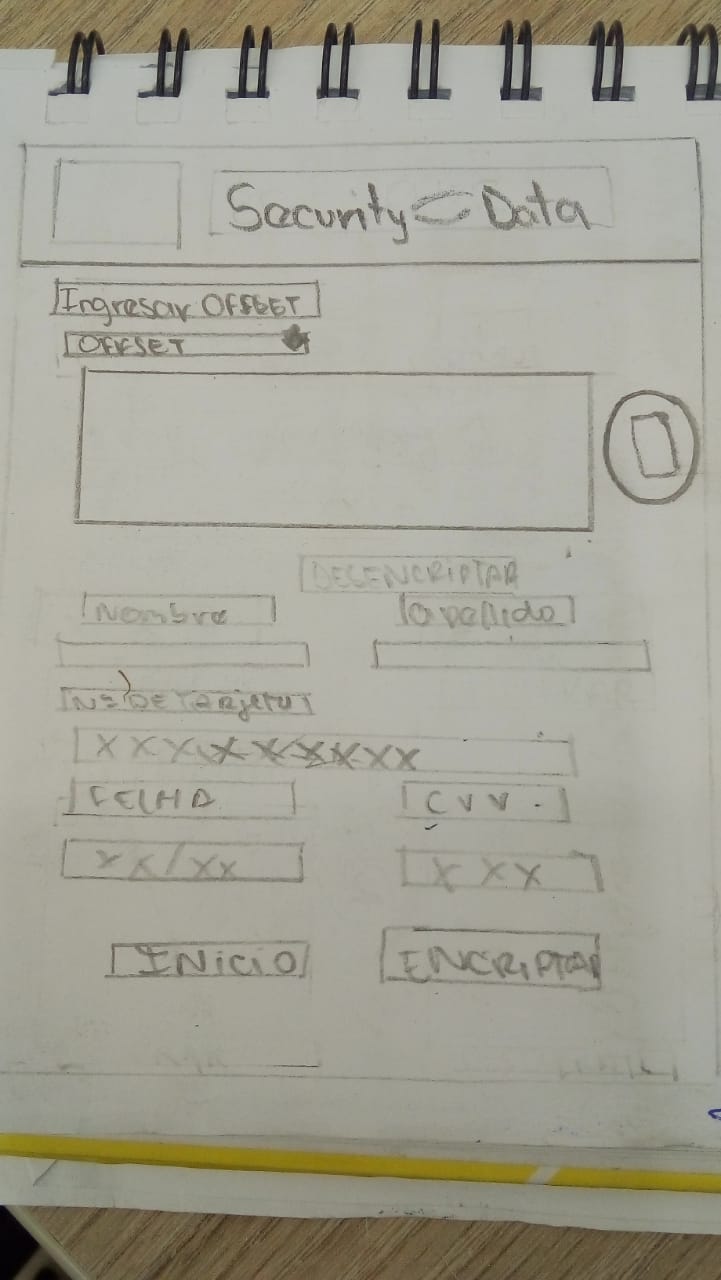 Security Data
Ingresar OFFSET
OFFSET
DECENCRIPTAR
Nombre apellido
Nº DE Tarjeta
XXXXXXXXXX
FECHA CVV.
XX/XX XXX
INICIO ENCRIPTAR